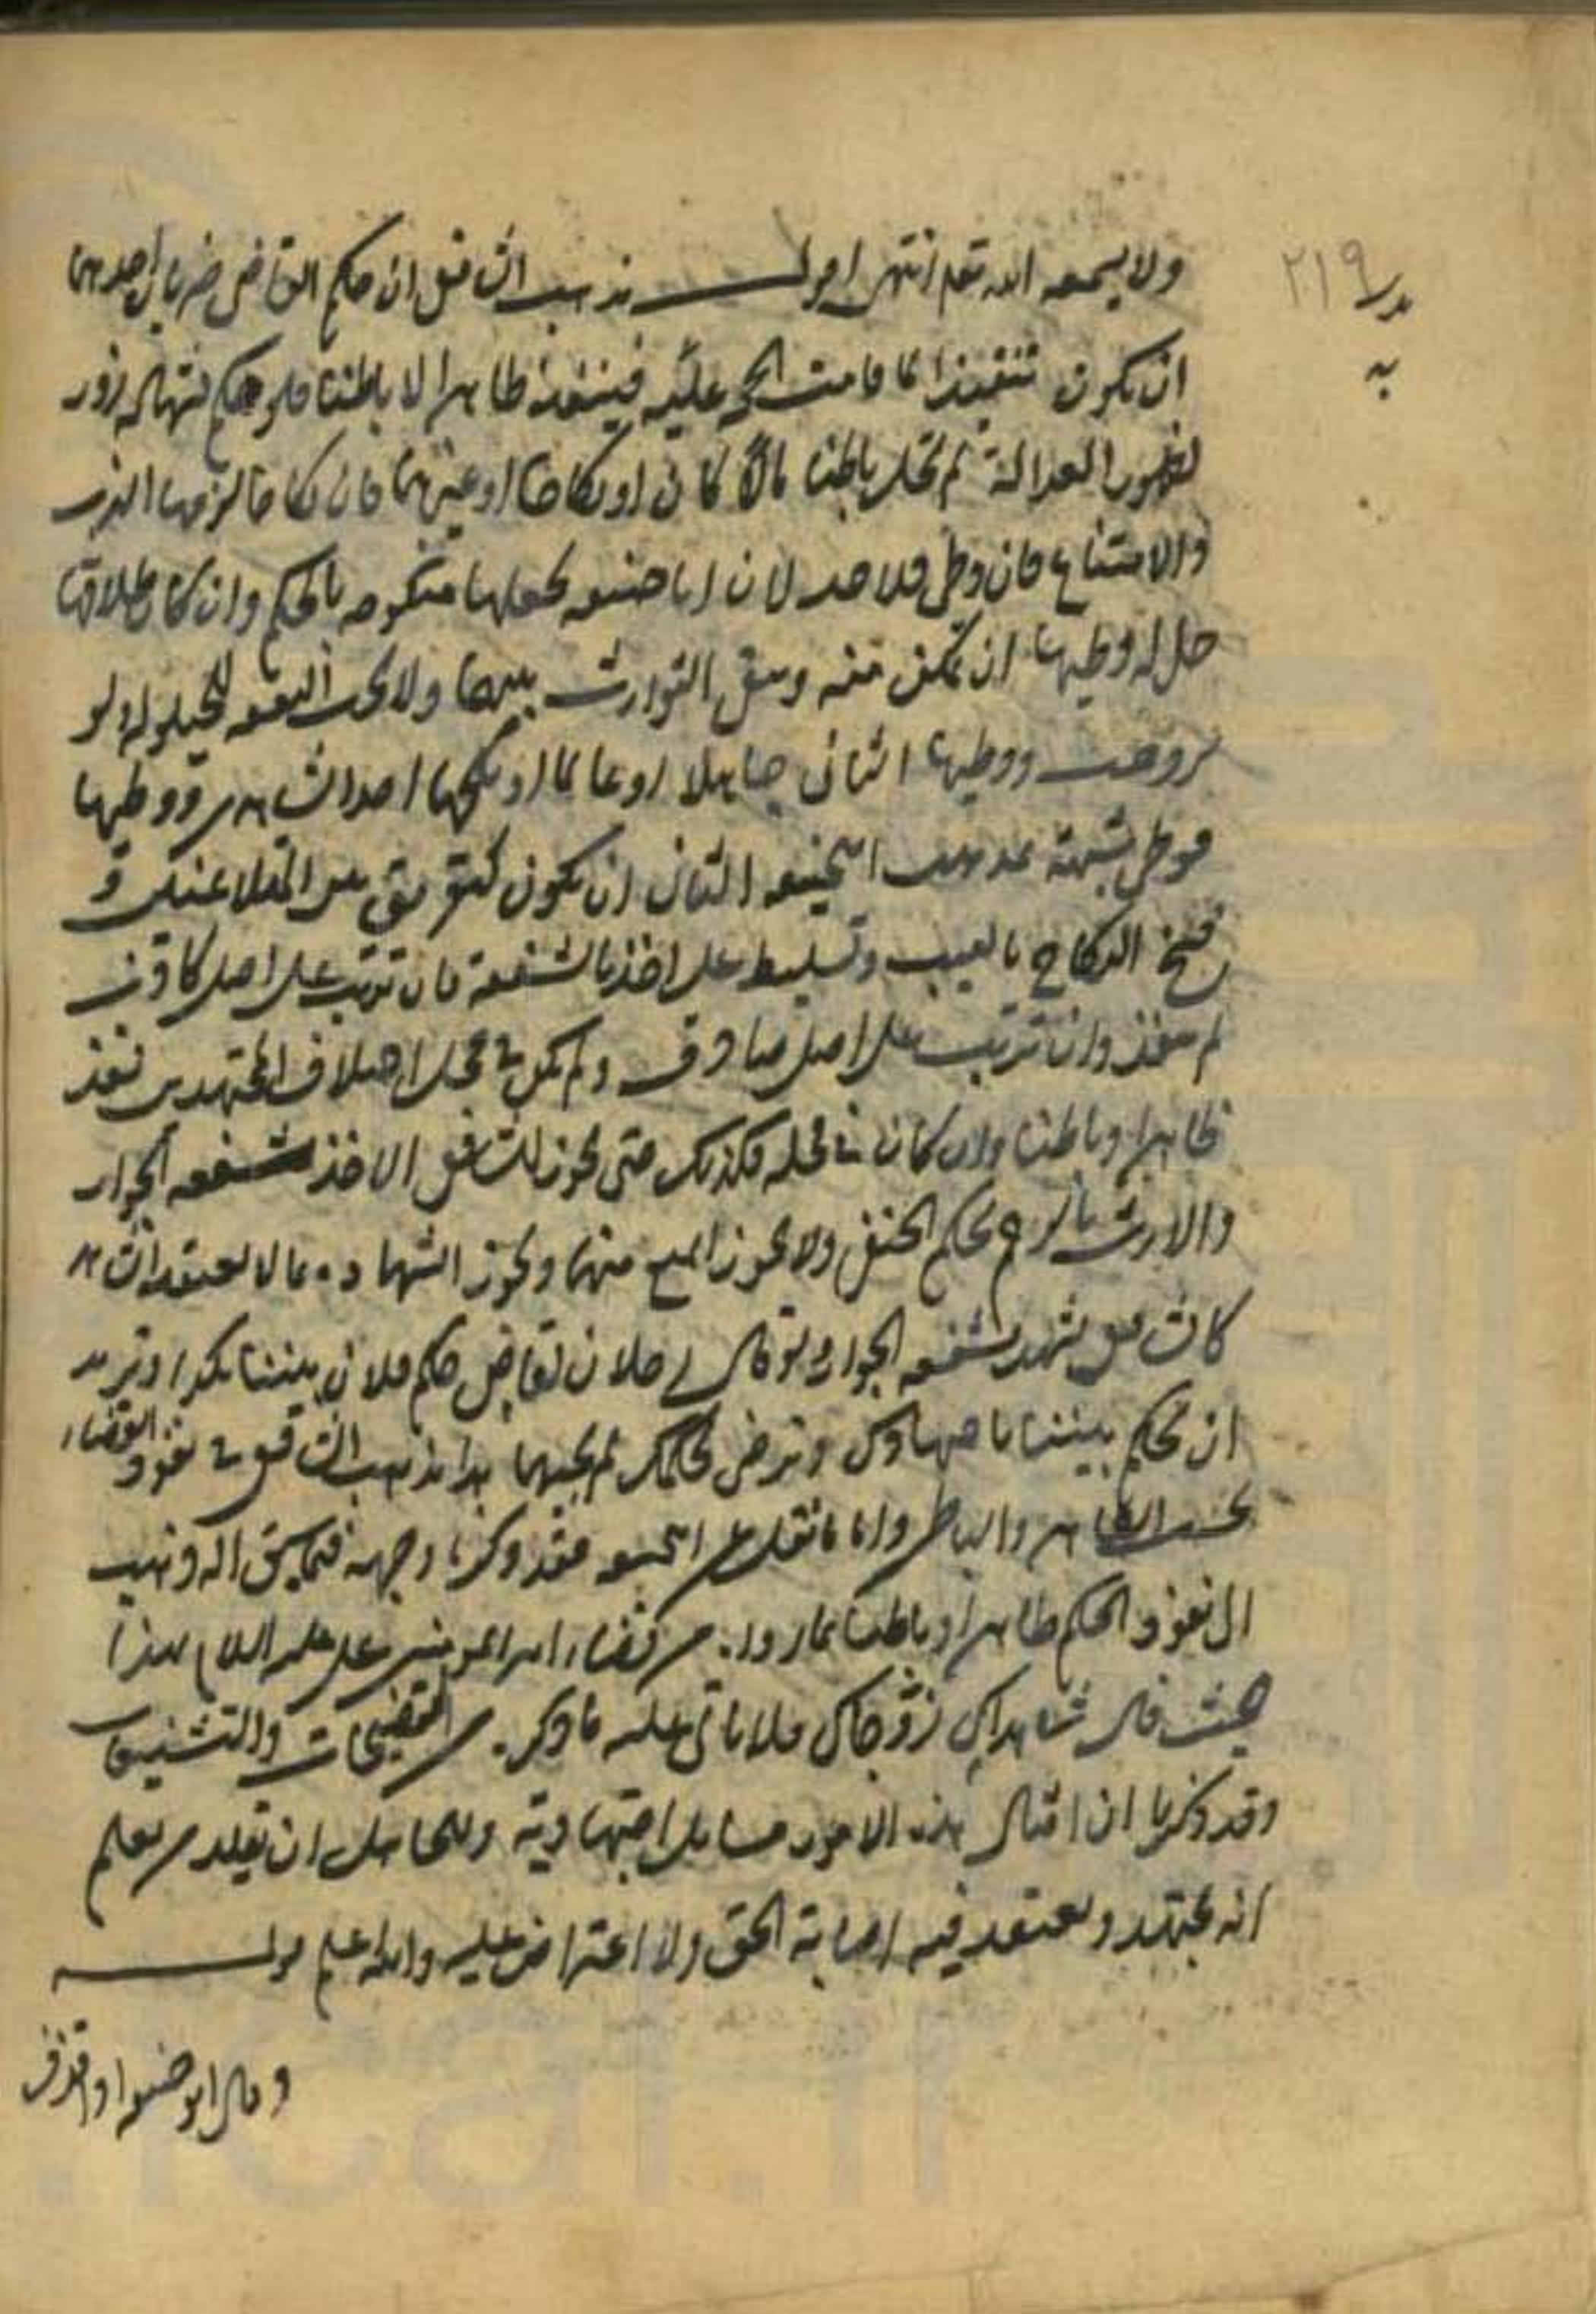 ٢١٩
ولا يسمعه الله تعم انتهى اقول مذهب الشافعي ان حكم القاضي ضربان احدهما
ان يكون تنفيذا لما قامت الحجة عليه فينفذ ظاهرا لا باطنا فلو حكم بشهادة زور
لظهور العدالة لم تحل باطنا مالا كان او نكاحا او غيرهما فان نكاحا لزمها الهرب
والامتناع فان وطى فلا حد لان ابا حنيفه يجعلها منكوحه بالحكم وان كان طلاقا
حل له وطيها ان تمكن منه ويبقى التوارث بينهما ولا يجب النفقه للحيلوله ولو
تزوجت ووطيها الثاني جاهلا او عالما او نكحها احد الشاهدين ووطيها
فوطى شبهة عند ابيحنيفه الثاني ان يكون كتفريق بين المتلاعنين و
فسخ النكاح بالعيب وتسليط على اخذ بالشفعة فان ترتب على اصل كاذب
لم ينفذ وان ترتب على اصل صادق ولم يكن في محل اختلاف المجتهدين نفذ
ظاهرا وباطنا وان كان في محله فكذلك حتى يجوز للشافعي الاخذ بشفعه الجوار
والارث بالرحم بحكم الحنفي ولا يجوز المنع منهما ويجوز الشهادة بما لا يعتقد الشاهد
كالشافعي يشهد بشفعه الجوار ولو قال رجلان لقاض حكم فلان بيننا بكذا ونريد
ان تحكم بيننا باجتهادك ونرضى بحكمك لم يجبهما هذا مذهب الشافعي في نفوذ القضاء
بحسب الظاهر والباطن واما ما نقل عن ابيحنيفه فقد ذكرنا وجهه فيما سبق انه ذهب
الى نفوذ الحكم ظاهرا وباطنا بما رواه من قضاء امير المومنين على عليه السلام بهذا
حيث قال شاهداك زوجاك فلا ياتى عليه ما ذكره من التفضيحات والتشنيعات
وقد ذكرنا ان امثال هذه الامور مسايل اجتهادية وللجاهل ان يقلد من يعلم
انه مجتهد ويعتقد فيه اصابة الحق ولا اعتراض عليه والله اعلم قوله
وقال ابو حنيفه اذا قذف